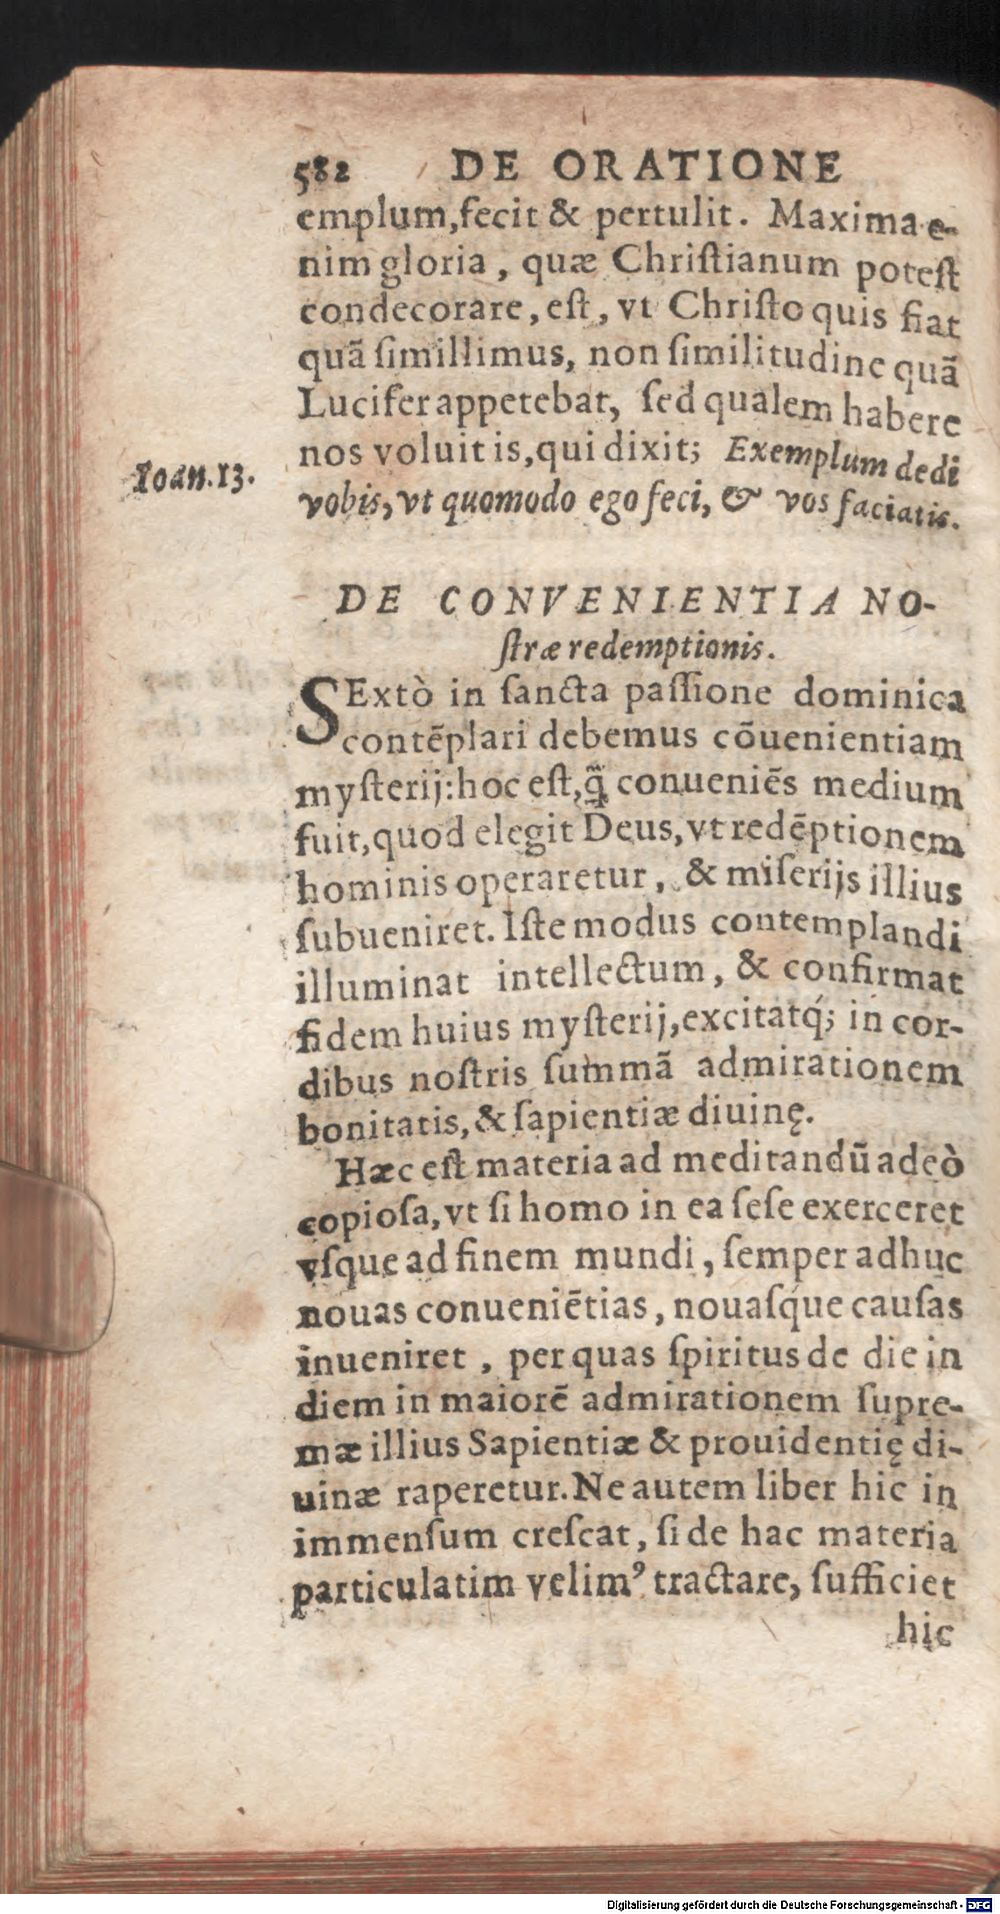 582 DE ORATIONE
emplum,fecit & pertulit. Maxima e-
nim gloria, quæ Chriſtianum poteſt
condecorare, eſt, vt Chriſto quis fiat
quã ſimillimus, non ſimilitudine quã
Lucifer appetebat, ſed qualem habere
nos voluit is,qui dixit; Exemplum dedi
Ioan.13.
vobis,vt quomodo ego feci, & vos faciatis.
DE CONVENIENTIA NO-
ſtræ redemptionis.
SExtò in ſancta paſſione dominica
contẽplari debemus cõuenientiam
myſterij:hoc eſt,q̃ conueniẽs medium
fuit,quod elegit Deus,vt redẽptionem
hominis operaretur, & miſerijs illius
ſubueniret. Iſte modus contemplandi
illuminat intellectum, & confirmat
fidem huius myſterij,excitatq́; in cor-
dibus noſtris ſummã admirationem
bonitatis,& ſapientiæ diuinę.
Hæc eſt materia ad meditandũ adeò
copioſa,vt ſi homo in ea ſeſe exerceret
vſque ad finem mundi, ſemper adhuc
nouas conueniẽtias, nouaſque cauſas
inueniret, per quas ſpiritus de die in
diem in maiorẽ admirationem ſupre-
mæ illius Sapientiæ & prouidentię di-
uinæ raperetur.Ne autem liber hic in
immenſum creſcat, ſi de hac materia
particulatim velimꝰ tractare, ſufficiet
hic
Digitalisierung gefördert durch die Deutsche Forschungsgemeinschaft - DFG